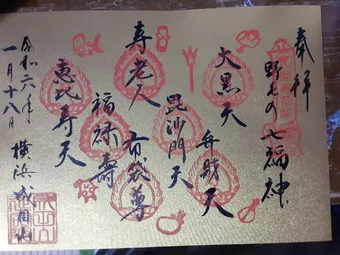 奉拝
野毛の七福神
大黒天
弁財天
毘沙門天
寿老人
布袋尊
福禄寿
恵比寿天
令和六年
一月十八日
横浜成田山